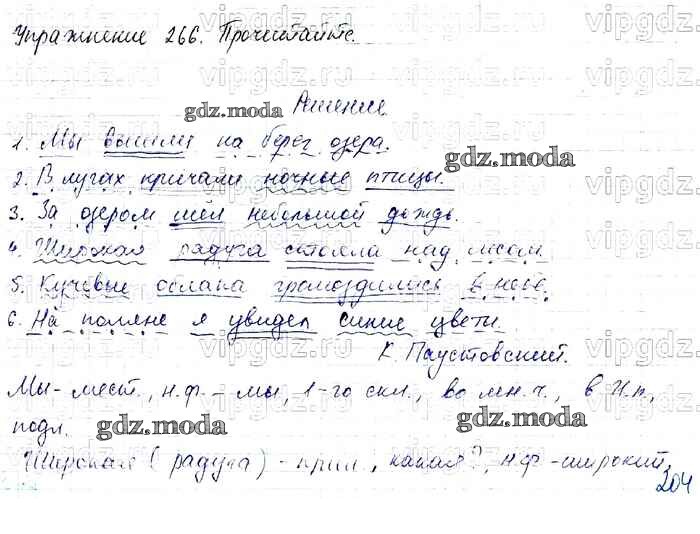 Упражнение 266. Прочитайте.
Решение
gdz.moda
1. Мы вышли на берег озера.
gdz.moda
2. В лугах кричали ночные птицы.
3. За озером шёл небольшой дождь.
4. Широкая радуга стояла над лесом
5. Кучевые облака громоздились в небе.
6. На поляне я увидел синие цветы.
К. Паустовский.
Мы - мест., н.ф. - мы, 1-го скл., во мн.ч., в И.п,
подл.
gdz.moda
gdz.moda
Широкая (радуга) - прил., какая?, н.ф - широкий,
204
vipgdz.ru